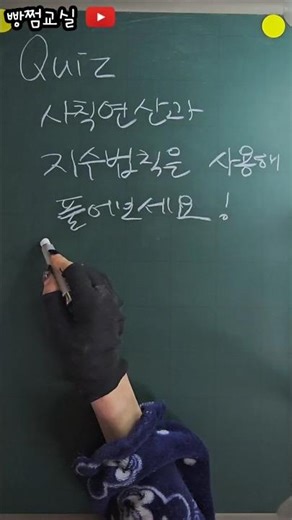 빵쩜교실
Quiz
사칙연산과
지수법칙을 사용해
풀어보세요!